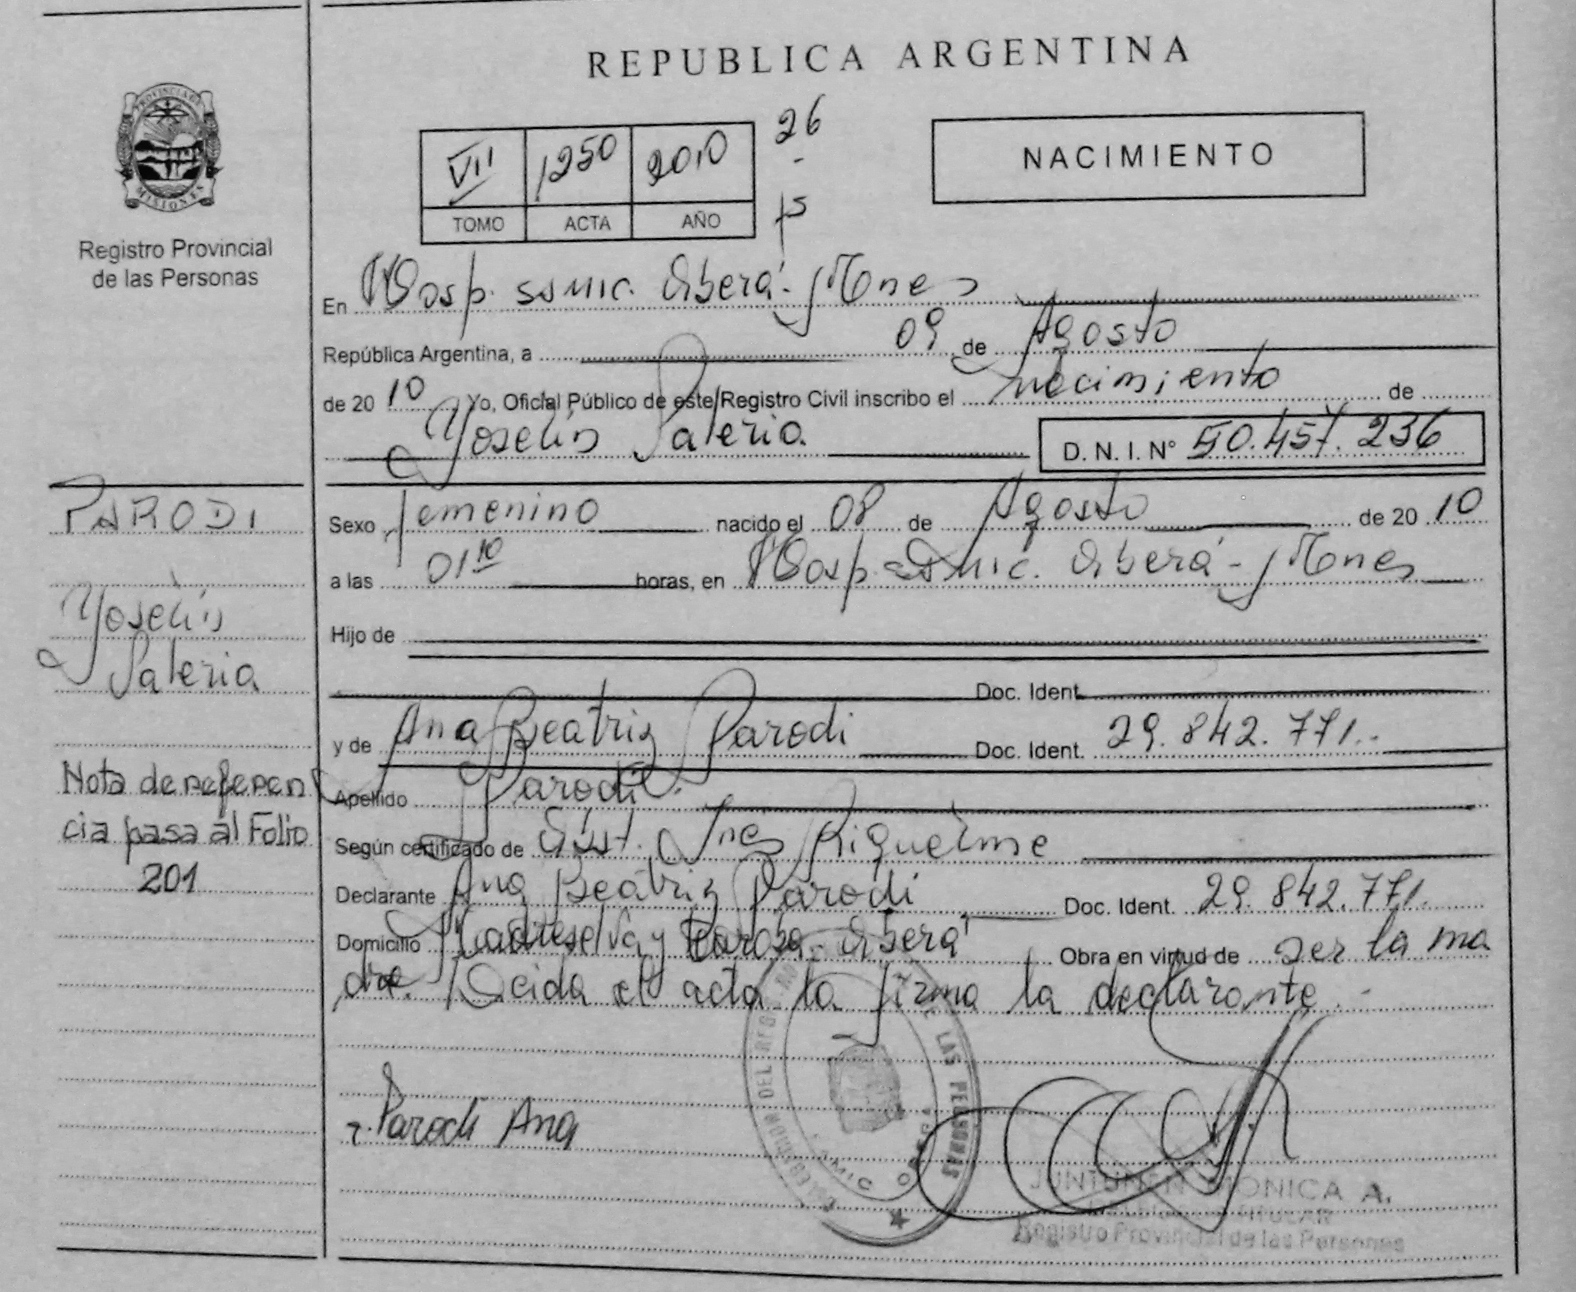 REPUBLICA ARGENTINA
PROVINCIA DE MISIONES
Registro Provincial
de las Personas
VII 1250 2010
TOMO ACTA AÑO
26
NACIMIENTO
En Hosp. SAMIC. Oberá - Mnes
República Argentina, a 09 de Agosto
de 20 10 Yo, Oficial Público de este Registro Civil inscribo el nacimiento de
Yoselin Valeria D. N. I. N° 50.457.236
PARODI
Yoselin
Valeria
Sexo femenino nacido el 08 de Agosto de 20 10
a las 01 10 horas, en Hosp. SAMIC. Oberá - Mnes
Hijo de
Doc. Ident.
y de Ana Beatriz Parodi Doc. Ident. 29.842.771.
Nota de referen
cia pasa al Folio
201
Apellido Parodi.
Según certificado de Obst. Ines Riquelme
Declarante Ana Beatriz Parodi Doc. Ident. 29.842.771.
Domicilio Madreselva y - Oberá Obra en virtud de ser la ma
dre. Leida el acta la firma la declarante.
Parodi Ana
DE LAS PERSONAS
JUNTUNEN MONICA A.
TITULAR
Registro Provincial de las Personas